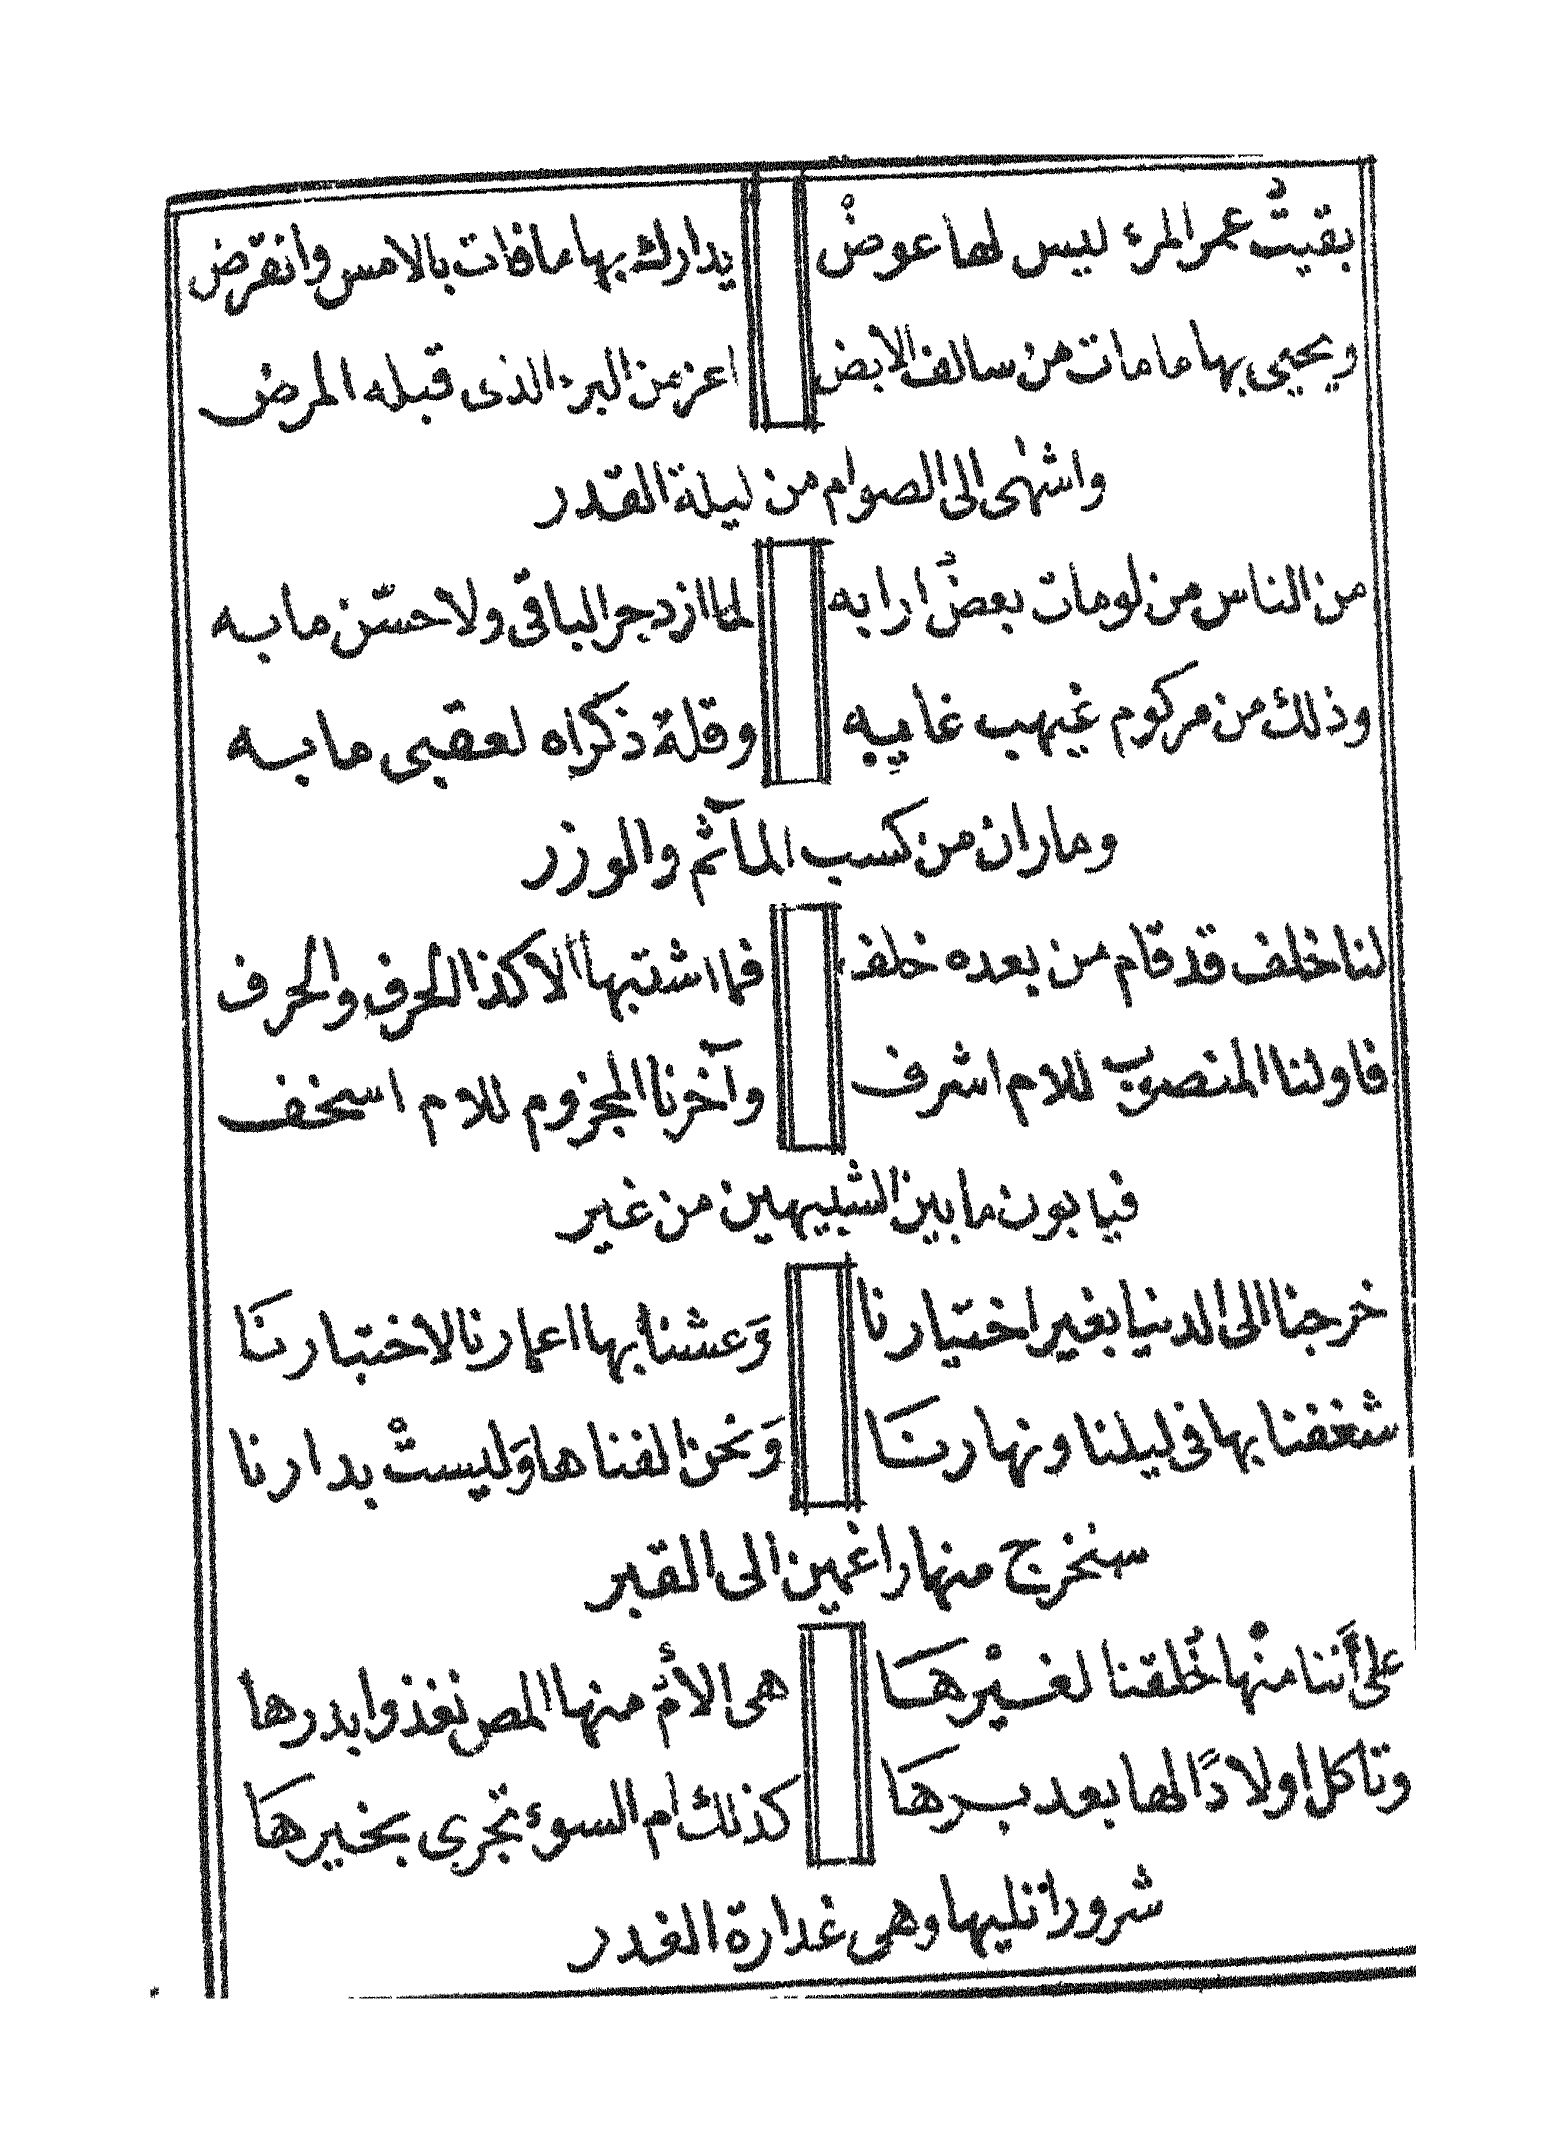 بقيتُ عمر المرء ليس لها عوضْ يدارك بها ما فات بالامس وانقرض
ويحيى بها ما مات من سالف الابض اعز من البرء الذى قبله المرض
واشهى الى الصوام من ليلة القدر
من الناس من لو مات بعضُ ارابه لما ازدجر الباقى ولا حسّن ما به
وذلك من مركوم غيهب غاميه وقلة ذكراه لعقبى ما به
وما ران من كسب المآثم والوزر
لنا خلف قد قام من بعده خلف فما اشتبها الا كذا الحرف والحرف
فاولنا المنصوب للام اشرف وآخرنا المجزوم للام اسخف
فيا بون ما بين الشبيهين من غير
خرجنا الى الدنيا بغير اختيارنا وَعشنا بها اعمارنا لاختبارنَا
شغفنا بها فى ليلنا ونهارنَا وَنحن الفناها وَليستْ بدارنا
سنخرج منها راغمين الى القبر
على أَننا منْها خُلقنا لغيْرهَا هى الأمُّ منها المص نغذوا بدرها
وتاكل اولادًا لها بعد برهَا كذلك ام السوء تجرى بخيرهَا
شرورا تليها وهى غدارة الغدر